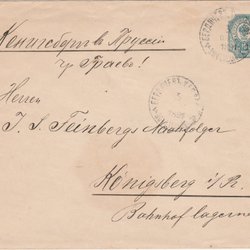 Кенигсберг в Пруссіи
чр. Граево!
Herren
J. S. Feinbergs Nachfolger
Königsberg i/Pr.
Bahnhof lagernd